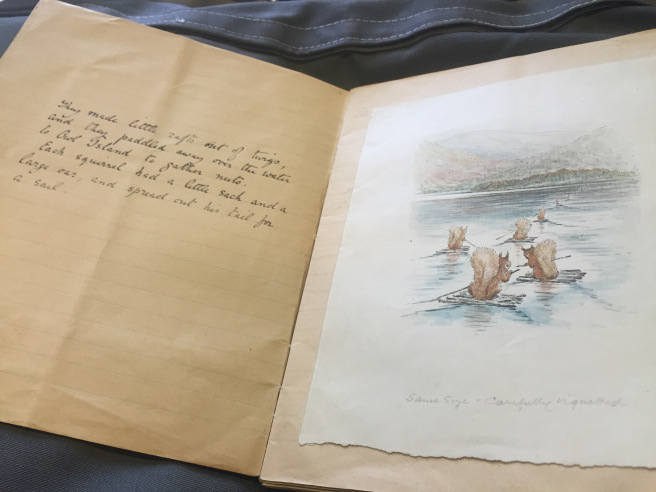 They made little rafts out of twigs,
and they paddled away over the water
to Owl Island to gather nuts.
Each squirrel had a little sack and a
large oar, and spread out his tail for
a sail.
Same Size - Carefully Vignetted